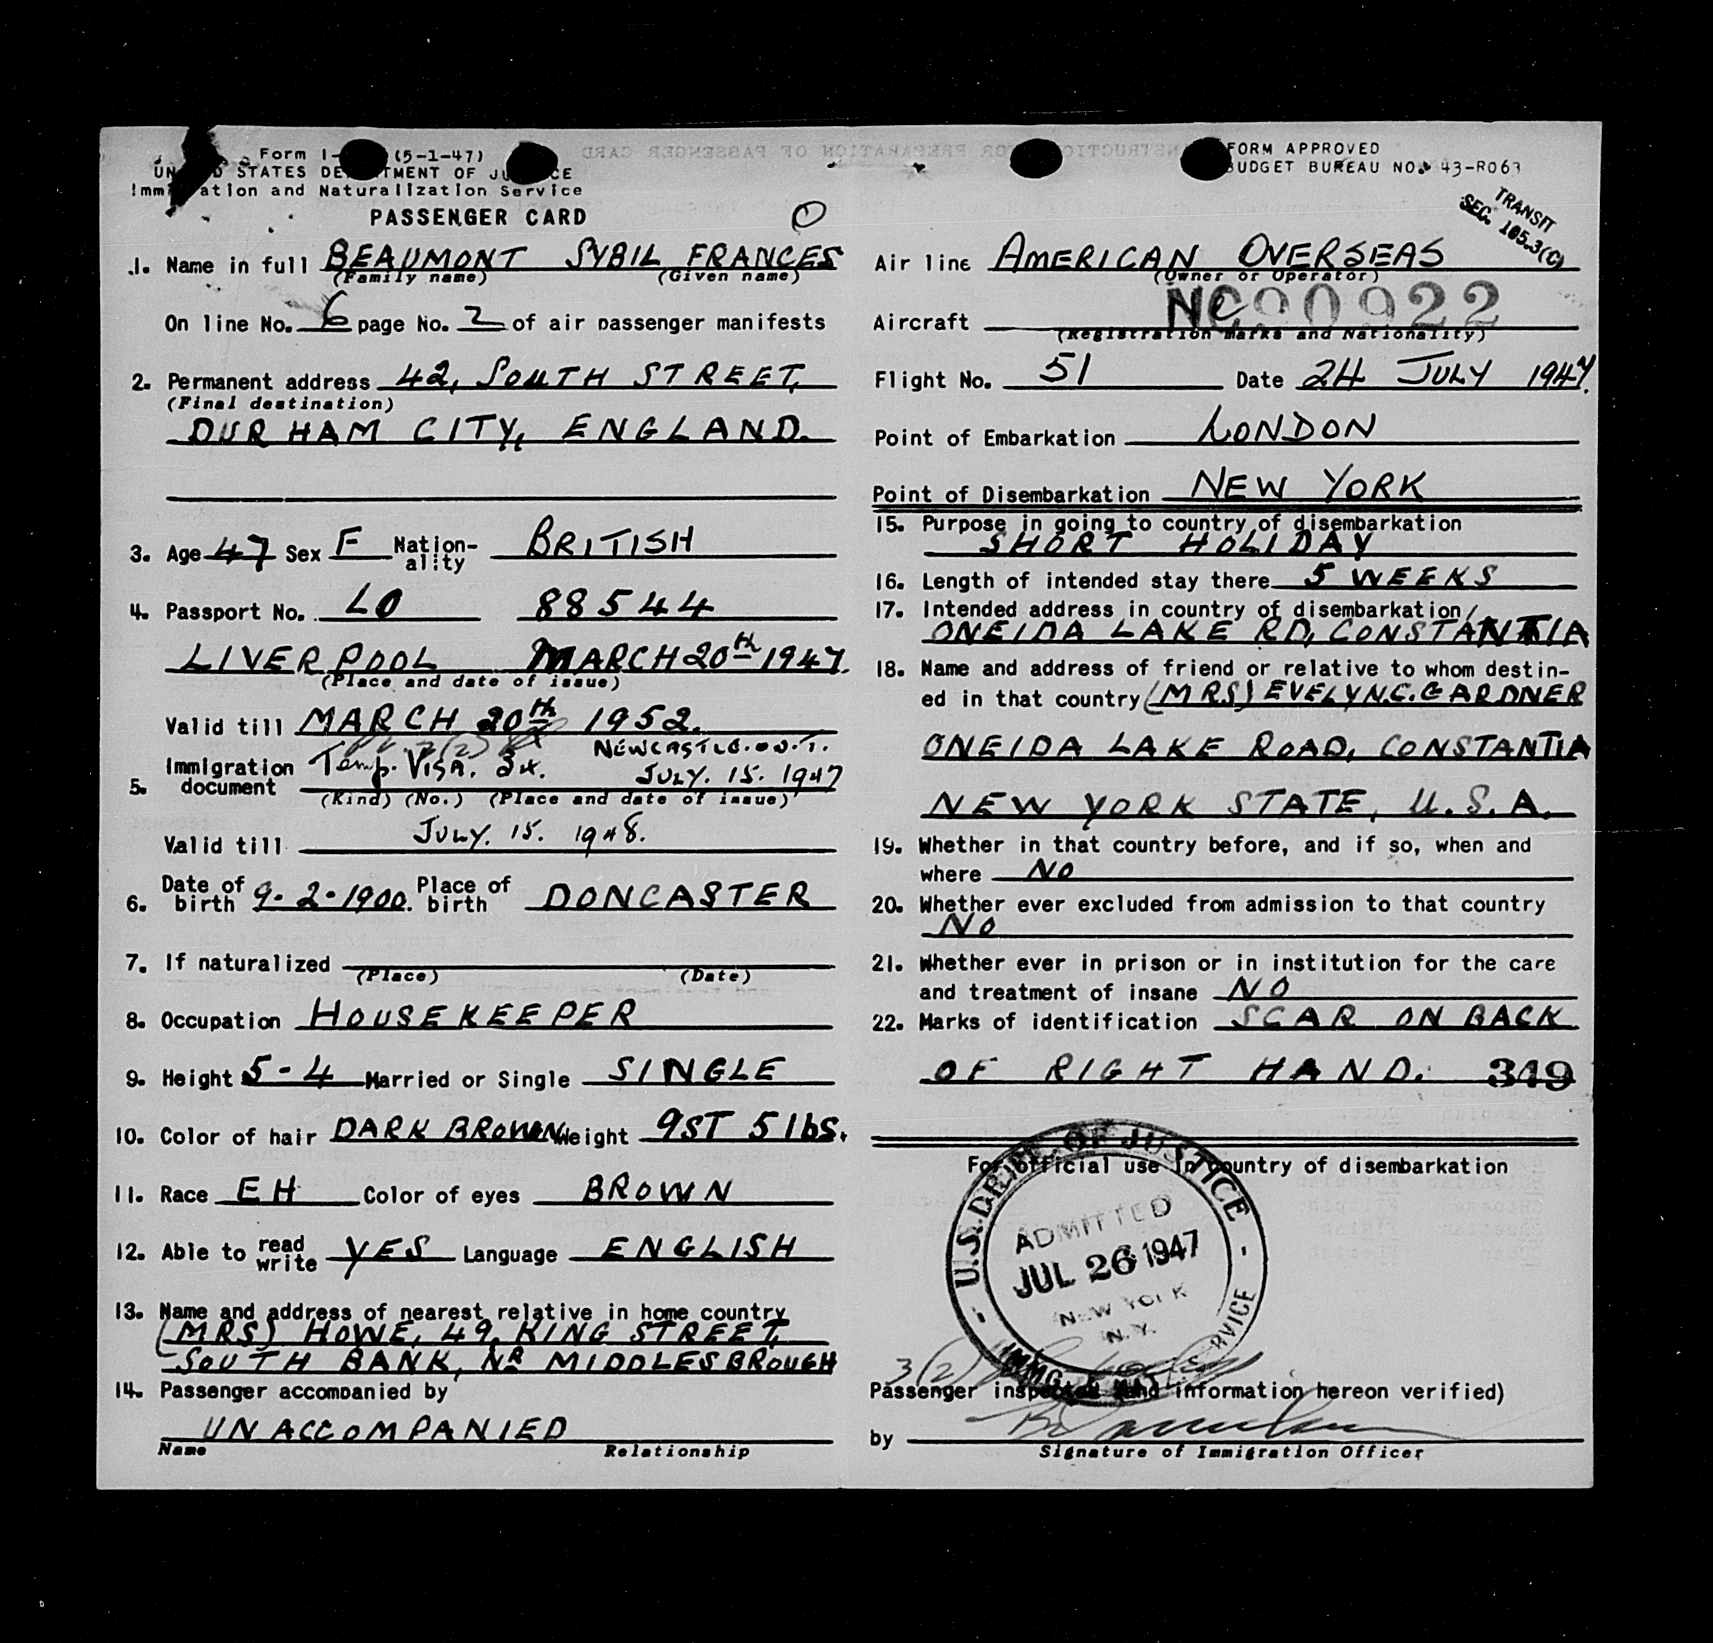 Form I- (5-1-47)
UNITED STATES DEPARTMENT OF JUSTICE
Immigration and Naturalization Service
PASSENGER CARD
O
1. Name in full BEAUMONT SYBIL FRANCES
(Family name) (Given name)
On line No. 6 page No. 2 of air passenger manifests
2. Permanent address 42, SOUTH STREET,
(Final destination)
DURHAM CITY, ENGLAND.
3. Age 47 Sex F Nation-ality BRITISH
4. Passport No. LO 88544
LIVERPOOL MARCH 20th 1947.
(Place and date of issue)
Valid till MARCH 20th 1952.
5. Immigration document Temp. VISA. 3(2) NEWCASTLE.ON.T.
JULY. 15. 1947
(Kind) (No.) (Place and date of issue)
Valid till JULY. 15. 1948.
6. Date of birth 9-2-1900. Place of birth DONCASTER
7. If naturalized
(Place) (Date)
8. Occupation HOUSEKEEPER
9. Height 5-4 Married or Single SINGLE
10. Color of hair DARK BROWN Weight 9ST 5 lbs.
11. Race EH Color of eyes BROWN
12. Able to read write YES Language ENGLISH
13. Name and address of nearest relative in home country
(MRS) HOWE, 49, KING STREET,
SOUTH BANK, NR MIDDLESBROUGH
14. Passenger accompanied by
UNACCOMPANIED
Name Relationship
FORM APPROVED
BUDGET BUREAU NO. 43-R063
TRANSIT
SEC. 165.3(C)
Air line AMERICAN OVERSEAS
(Owner or Operator)
Aircraft NC90922
(Registration marks and Nationality)
Flight No. 51 Date 24 JULY 1947.
Point of Embarkation LONDON
Point of Disembarkation NEW YORK
15. Purpose in going to country of disembarkation
SHORT HOLIDAY
16. Length of intended stay there 5 WEEKS
17. Intended address in country of disembarkation
ONEIDA LAKE RD, CONSTANTIA
18. Name and address of friend or relative to whom destin-
ed in that country (MRS) EVELYN.C. GARDNER
ONEIDA LAKE ROAD, CONSTANTIA
NEW YORK STATE, U.S.A.
19. Whether in that country before, and if so, when and
where NO
20. Whether ever excluded from admission to that country
NO
21. Whether ever in prison or in institution for the care
and treatment of insane NO
22. Marks of identification SCAR ON BACK
OF RIGHT HAND. 349
For official use in country of disembarkation
U.S. DEPT. OF JUSTICE
ADMITTED
JUL 26 1947
NEW YORK
N.Y.
3(2)
Passenger inspected (and information hereon verified)
by
Signature of Immigration Officer